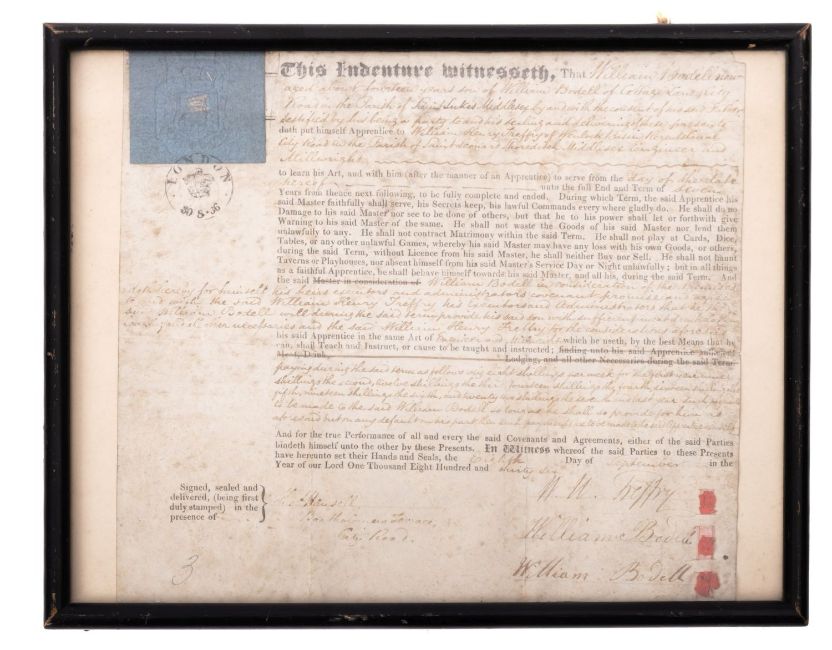 This Indenture witnesseth, That William Bodell now
aged about fourteen years son of William Bodell of Cottage
Road in the Parish of Saint Lukes Middlesex by and with the consent of his said Father
testified by his being a party to and his sealing and delivering of these presents
doth put himself Apprentice to William Henry Treffry of
City Road in the Parish of Saint Leonard Shoreditch Middlesex Engineer and
Millwright
to learn his Art, and with him (after the manner of an Apprentice) to serve from the day of the date
hereof unto the full End and Term of Seven
Years from thence next following, to be fully complete and ended. During which Term, the said Apprentice his
said Master faithfully shall serve, his Secrets keep, his lawful Commands every where gladly do. He shall do no
Damage to his said Master nor see to be done of others, but that he to his power shall let or forthwith give
Warning to his said Master of the same. He shall not waste the Goods of his said Master nor lend them
unlawfully to any. He shall not contract Matrimony within the said Term. He shall not play at Cards, Dice,
Tables, or any other unlawful Games, whereby his said Master may have any loss with his own Goods, or others,
during the said Term, without Licence from his said Master, he shall neither Buy nor Sell. He shall not haunt
Taverns or Playhouses, nor absent himself from his said Master's Service Day or Night unlawfully; but in all things
as a faithful Apprentice, he shall behave himself towards his said Master, and all his, during the said Term. And
the said Master in consideration of William Bodell in consideration of the
hereby for himself his heirs executors and administrators covenant promise and agree
to and with the said William Henry Treffry his executors and administrators that he the
said William Bodell will during the said term provide his said son with sufficient
and other necessaries and the said William Henry Treffry for the considerations aforesaid
his said Apprentice in the same Art of Engineer and Millwright which he useth, by the best Means that he
can, shall Teach and Instruct, or cause to be taught and instructed; finding unto his said Apprentice sufficient
Meat, Drink, Lodging, and all other Necessaries during the said Term
paying during the said term as follows viz eight shillings per week for the first year
shillings the second, twelve shillings the third fourteen shillings the fourth, sixteen shillings the
fifth, nineteen shillings the sixth, and twenty two shillings the seventh and last year such payments
to be made to the said William Bodell so long as he shall so provide for him as
aforesaid but on any default on his part the said payments to be made to the said Apprentice
And for the true Performance of all and every the said Covenants and Agreements, either of the said Parties
bindeth himself unto the other by these Presents. In Witness whereof the said Parties to these Presents
have hereunto set their Hands and Seals, the Day of September in the
Year of our Lord One Thousand Eight Hundred and thirty six
LONDON
30 8 36
Signed, sealed and
delivered, (being first
duly stamped) in the
presence of
Terrace
City Road.
W. H. Treffry
William Bodell
William Bodell
3